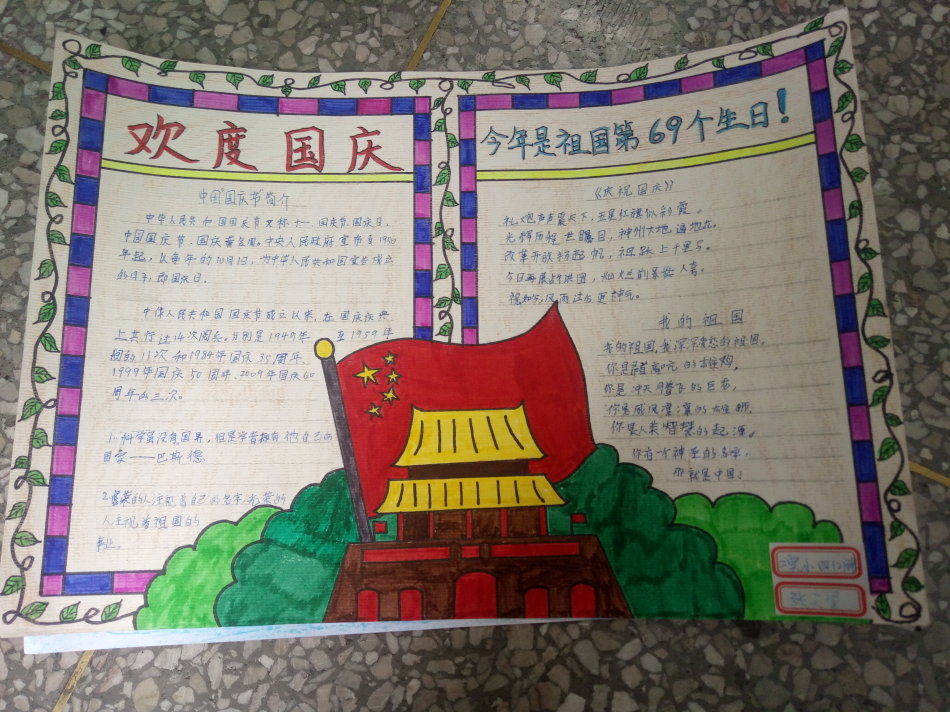 欢度国庆
中国"国庆节"简介
中华人民共和国国庆节又称十一、国庆节、国庆日、
中国国庆节、国庆黄金周。中央人民政府宣布自1950
年起，以每年的10月1日，为中华人民共和国宣告成立
的日子，即国庆日。
中华人民共和国国庆节成立以来，在国庆庆典
上共行过14次阅兵。分别是1949年 至1959年
间的11次和1984年国庆35周年、
1999年国庆50周年、2009年国庆60
周年的三次。
1.科学虽没有国界，但是学者拥有他自己的
国家——巴斯德
的人注视着自己的名字，光荣的
人注视着祖国的
事业。
今年是祖国第69个生日！
《庆祝国庆》
礼炮声声震天下，五星红旗似彩霞。
光辉历程世瞩目，神州大地遍地花。
改革开放扬起帆，祖跃上千里马。
今日再展
我的祖国
我的祖国，我深深爱恋的祖国。
你是
你是冲天腾飞的巨龙，
你是威风凛凛的雄狮，
你是人类智慧的起源。
你有一个神圣的名字，
那就是中国！